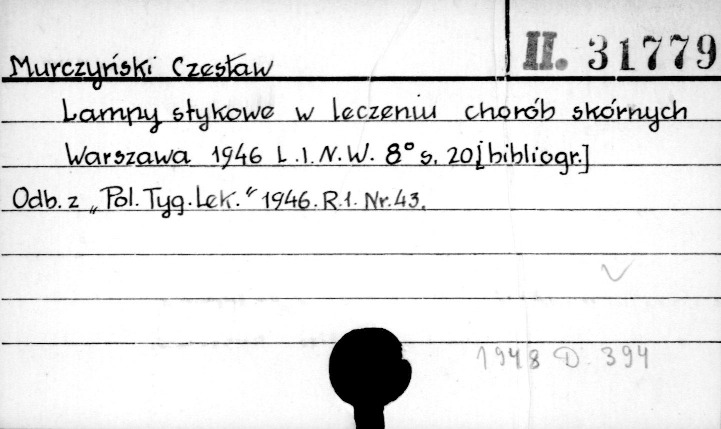 II. 31779
Murczyński Czesław
Lampy stykowe w leczeniu chorób skórnych
Warszawa 1946 L.I.N.W. 8° s. 20 [bibliogr.]
Odb. z „Pol. Tyg. Lek." 1946. R.1. Nr. 43.
1948 D. 394